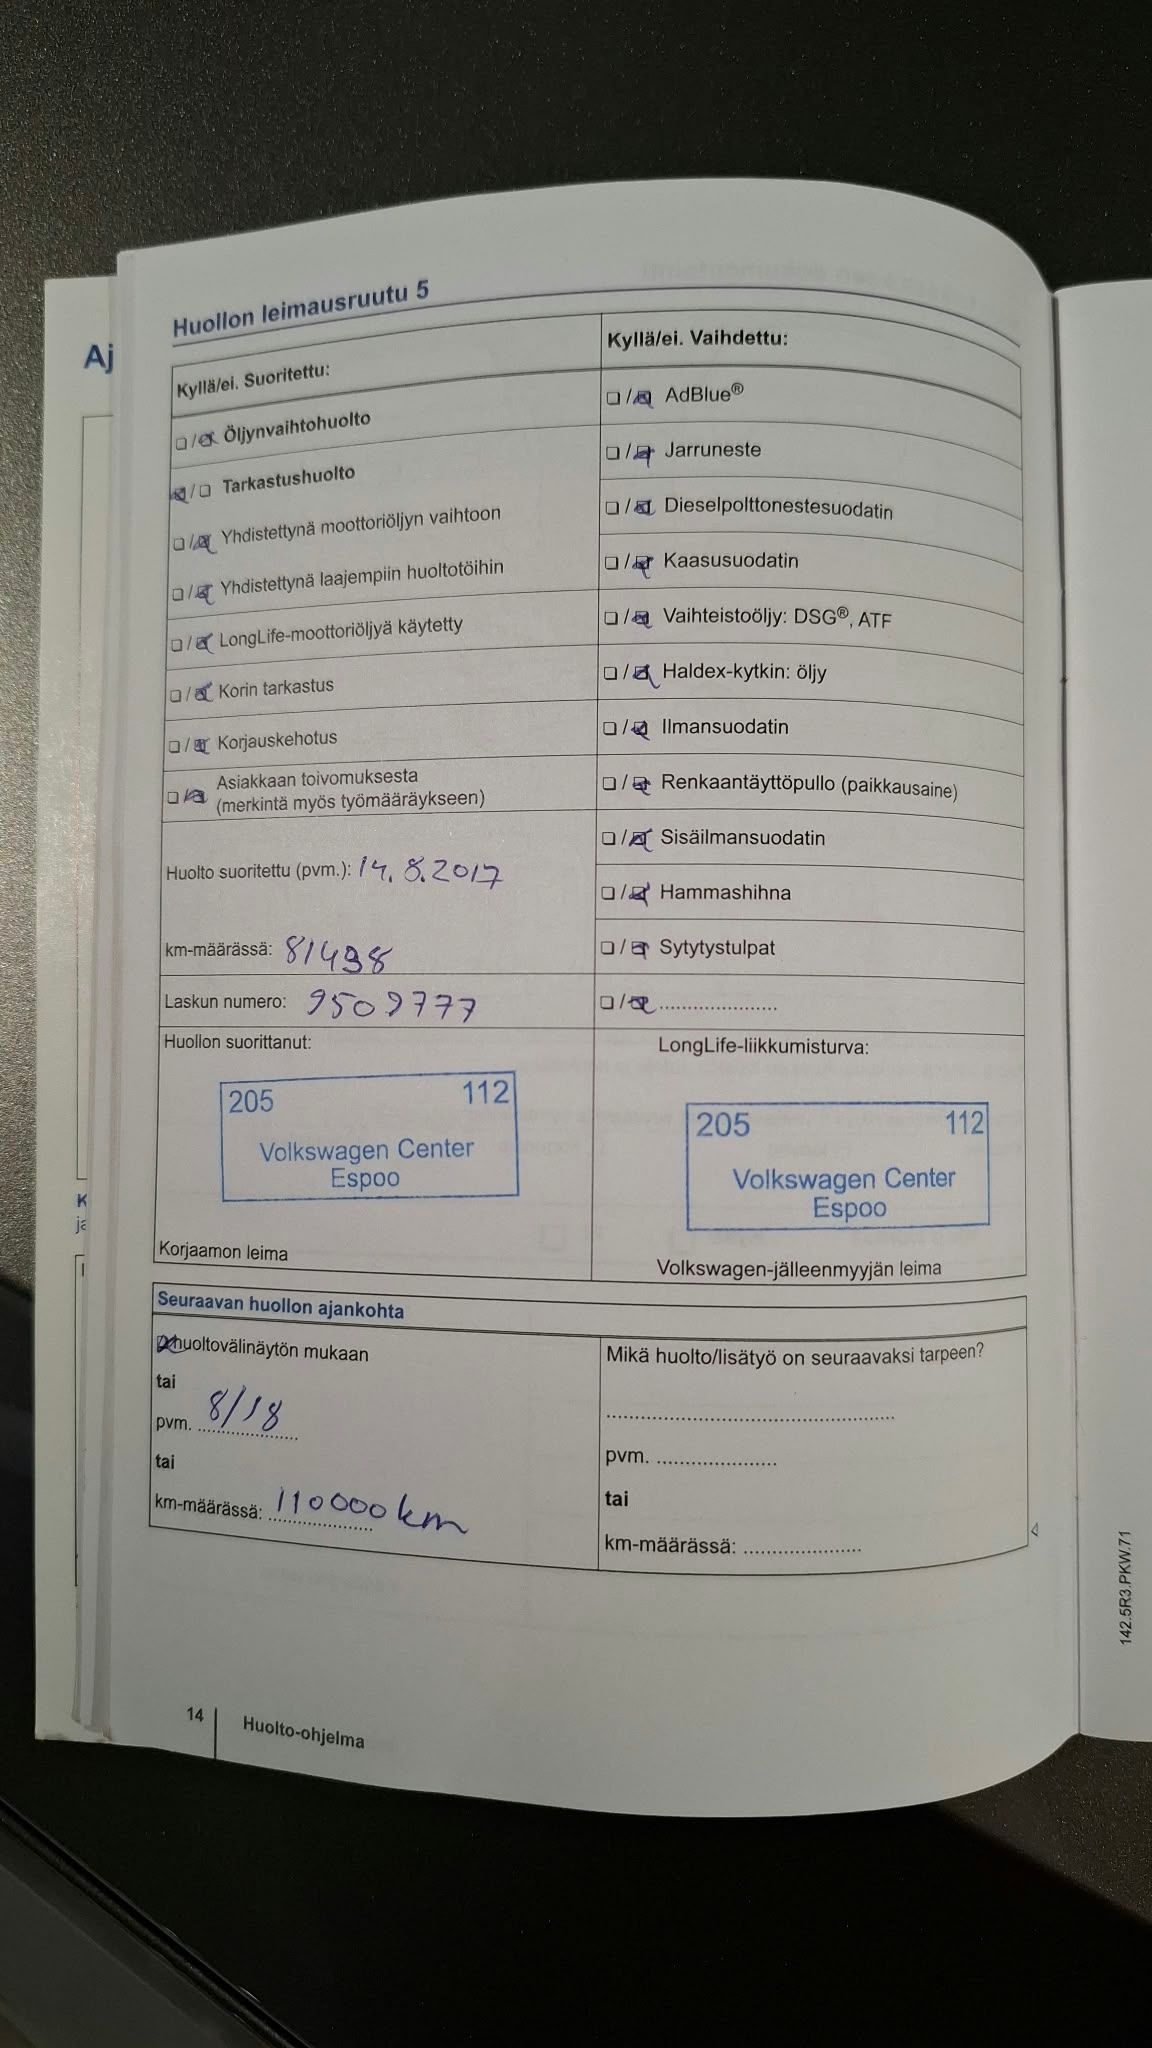 Aj
Huollon leimausruutu 5
Kyllä/ei. Suoritettu:
☐/☒ Öljynvaihtohuolto
☒/☐ Tarkastushuolto
☐/☒ Yhdistettynä moottoriöljyn vaihtoon
☐/☒ Yhdistettynä laajempiin huoltotöihin
☐/☒ LongLife-moottoriöljyä käytetty
☐/☒ Korin tarkastus
☐/☒ Korjauskehotus
☐/☒ Asiakkaan toivomuksesta
(merkintä myös työmääräykseen)
Huolto suoritettu (pvm.): 14.8.2017
km-määrässä: 81498
Laskun numero: 9509777
Huollon suorittanut:
205 112
Volkswagen Center
Espoo
Korjaamon leima
Kyllä/ei. Vaihdettu:
☐/☒ AdBlue®
☐/☒ Jarruneste
☐/☒ Dieselpolttonestesuodatin
☐/☒ Kaasusuodatin
☐/☒ Vaihteistoöljy: DSG®, ATF
☐/☒ Haldex-kytkin: öljy
☐/☒ Ilmansuodatin
☐/☒ Renkaantäyttöpullo (paikkausaine)
☐/☒ Sisäilmansuodatin
☐/☒ Hammashihna
☐/☒ Sytytystulpat
☐/☒ .....................
LongLife-liikkumisturva:
205 112
Volkswagen Center
Espoo
Volkswagen-jälleenmyyjän leima
Seuraavan huollon ajankohta
☒ huoltovälinäytön mukaan
tai
pvm. 8/18
tai
km-määrässä: 110000 km
Mikä huolto/lisätyö on seuraavaksi tarpeen?
.....................................................
pvm. .....................
tai
km-määrässä: .....................
14 Huolto-ohjelma
142.5R3.PKW.71